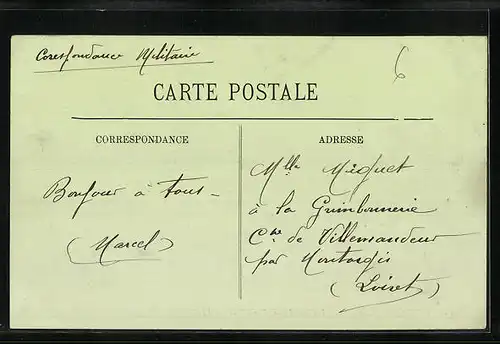 Corespondance Militaire
6
CARTE POSTALE
CORRESPONDANCE
Bonjour à tous -
(Marcel)
ADRESSE
Mlle Miguet
à la Grimbonnerie
Cne de Villemandeur
par Montargis
(Loiret)